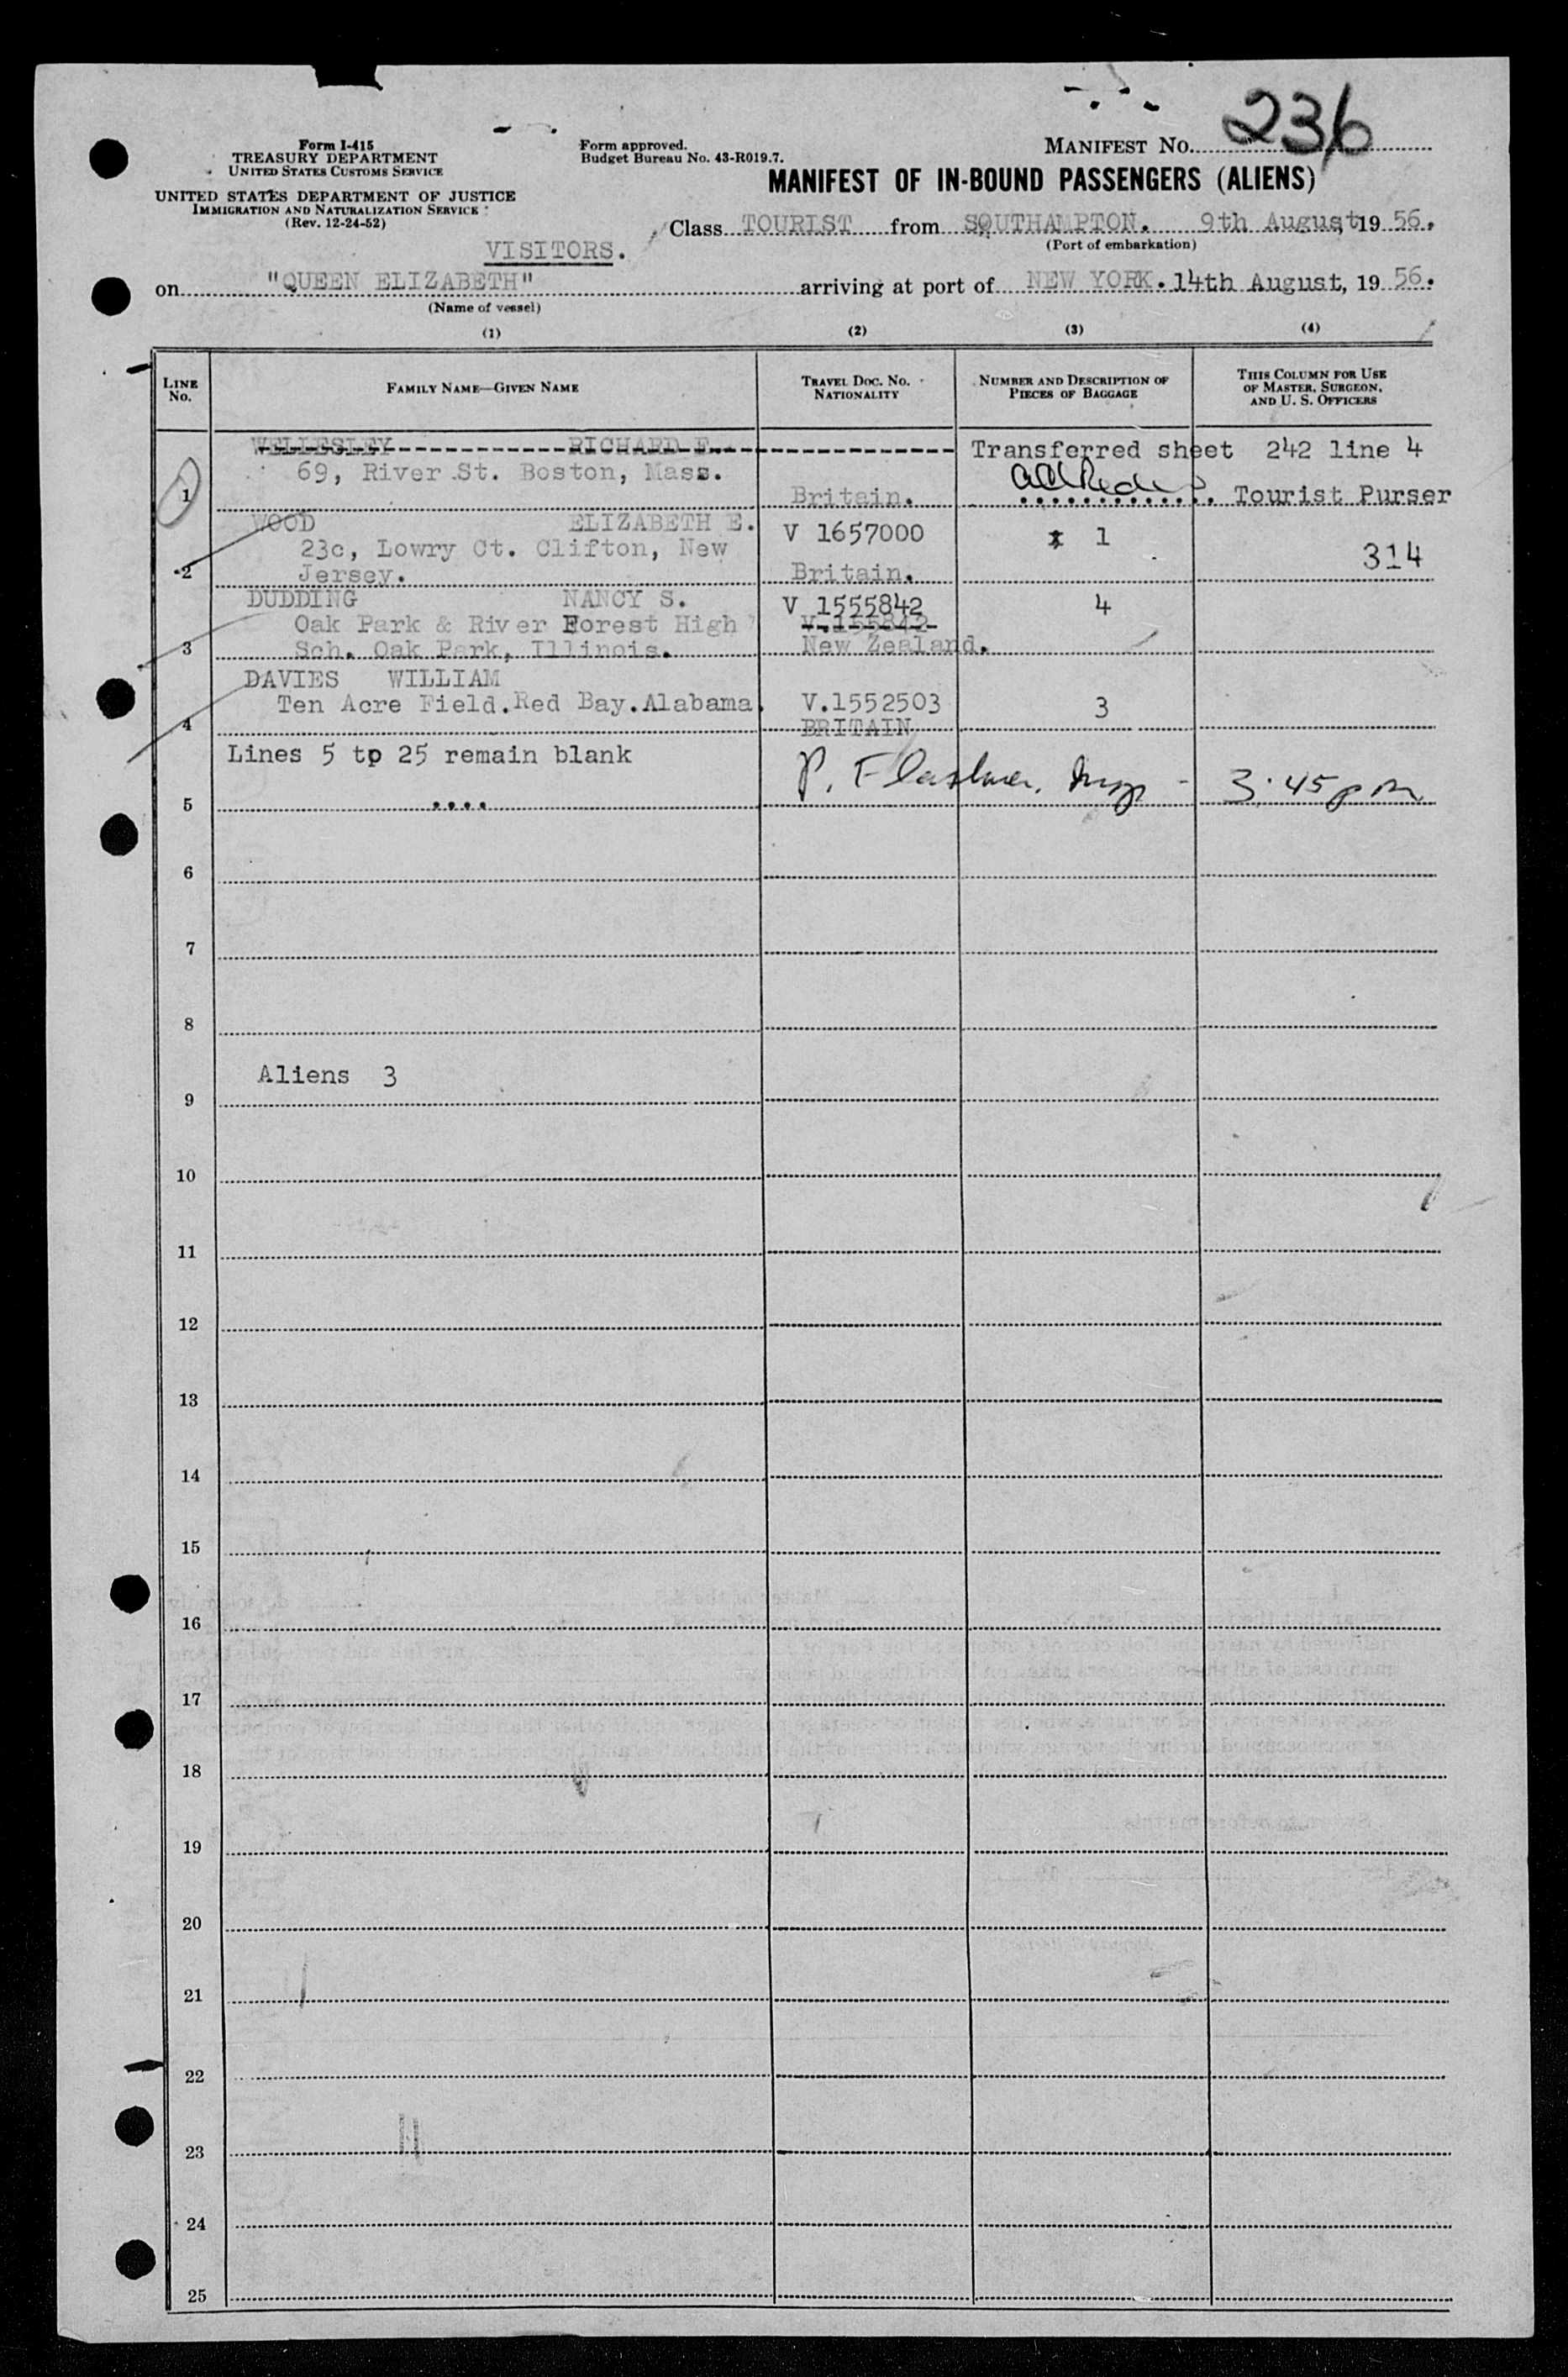 MANIFEST NO. 236
Form I-415
TREASURY DEPARTMENT
UNITED STATES CUSTOMS SERVICE
Form approved.
Budget Bureau No. 43-R019.7.
MANIFEST OF IN-BOUND PASSENGERS (ALIENS)
UNITED STATES DEPARTMENT OF JUSTICE
IMMIGRATION AND NATURALIZATION SERVICE
(Rev. 12-24-52)
Class TOURIST from SOUTHAMPTON. 9th August, 19 56.
(Port of embarkation)
VISITORS.
on "QUEEN ELIZABETH" arriving at port of NEW YORK. 14th August, 19 56.
(Name of vessel)
(1) (2) (3) (4)
LINE NO. FAMILY NAME—GIVEN NAME TRAVEL DOC. NO. NATIONALITY NUMBER AND DESCRIPTION OF PIECES OF BAGGAGE THIS COLUMN FOR USE OF MASTER, SURGEON, AND U. S. OFFICERS
WELLESLEY RICHARD F. Transferred sheet 242 line 4
69, River St. Boston, Mass.
1 Britain. Tourist Purser
WOOD ELIZABETH E. V 1657000 1
23c, Lowry Ct. Clifton, New 314
2 Jersey. Britain.
DUDDING NANCY S. V 1555842 4
Oak Park & River Forest High V.155842
3 Sch. Oak Park, Illinois. New Zealand.
DAVIES WILLIAM
Ten Acre Field.Red Bay.Alabama. V.1552503 3
4 BRITAIN
Lines 5 tp 25 remain blank
5 .... P. 3.45 pm
6
7
8
Aliens 3
9
10
11
12
13
14
15
16
17
18
19
20
21
22
23
24
25